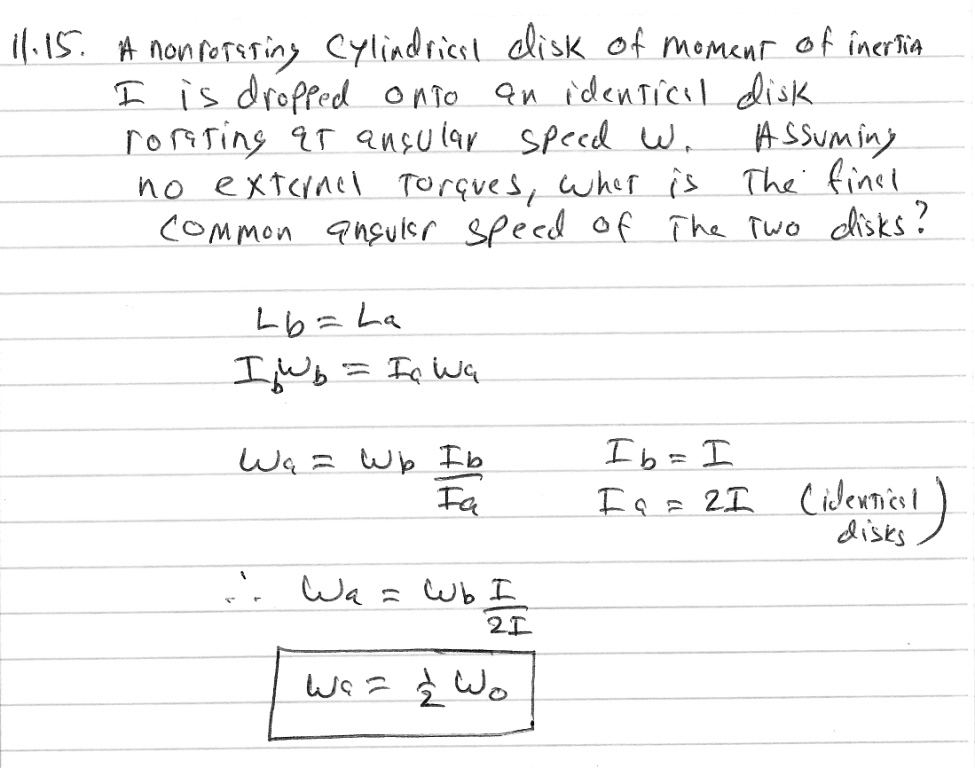 11.15. A nonrotating cylindrical disk of moment of inertia
I is dropped onto an identical disk
rotating at angular speed ω. Assuming
no external torques, what is the final
common angular speed of the two disks?
Lb = La
Ibωb = Iaωa
ωa = ωb Ib/Ia    Ib = I
Ia = 2I (identical disks)
∴ ωa = ωb I/2I
ωa = 1/2 ω0